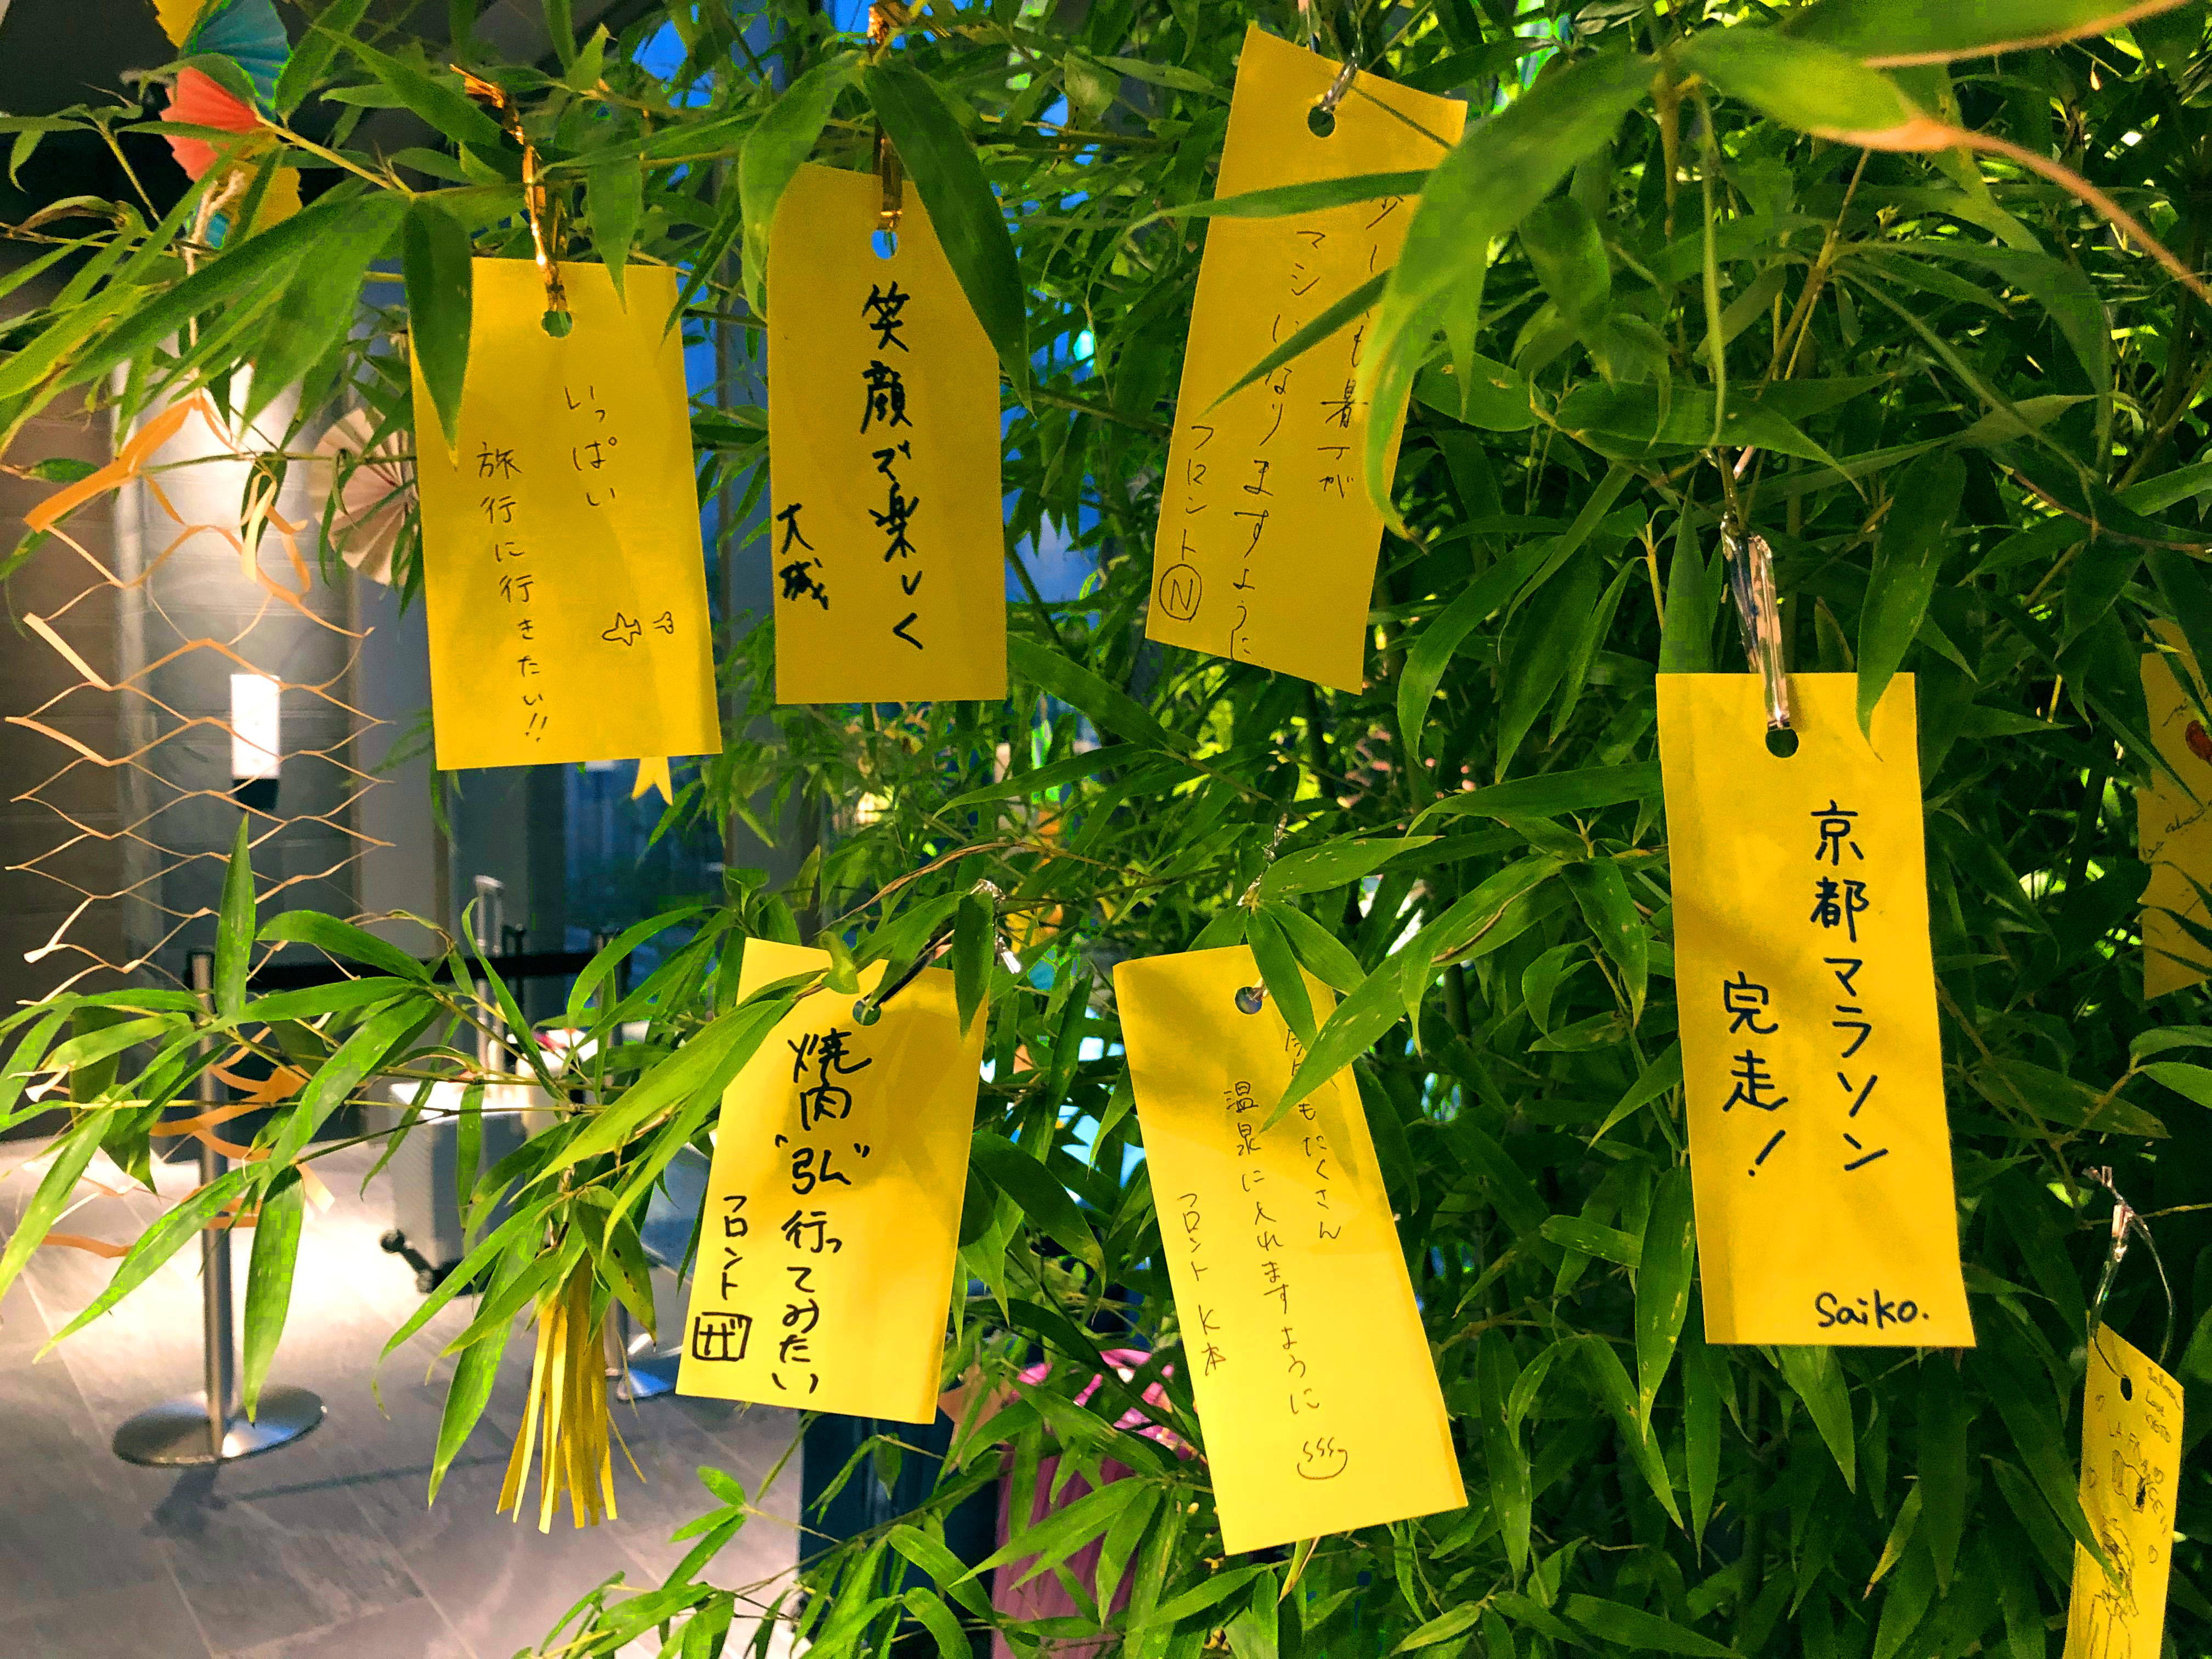 いっぱい
旅行に行きたい!!
笑顔で楽しく
大城
も暑さが
マシになりますように。
フロント Ⓝ
京都マラソン
完走!
Saiko.
焼肉"弘"行ってみたい
フロント ザ
もたくさん
温泉に入れますように
フロント K本